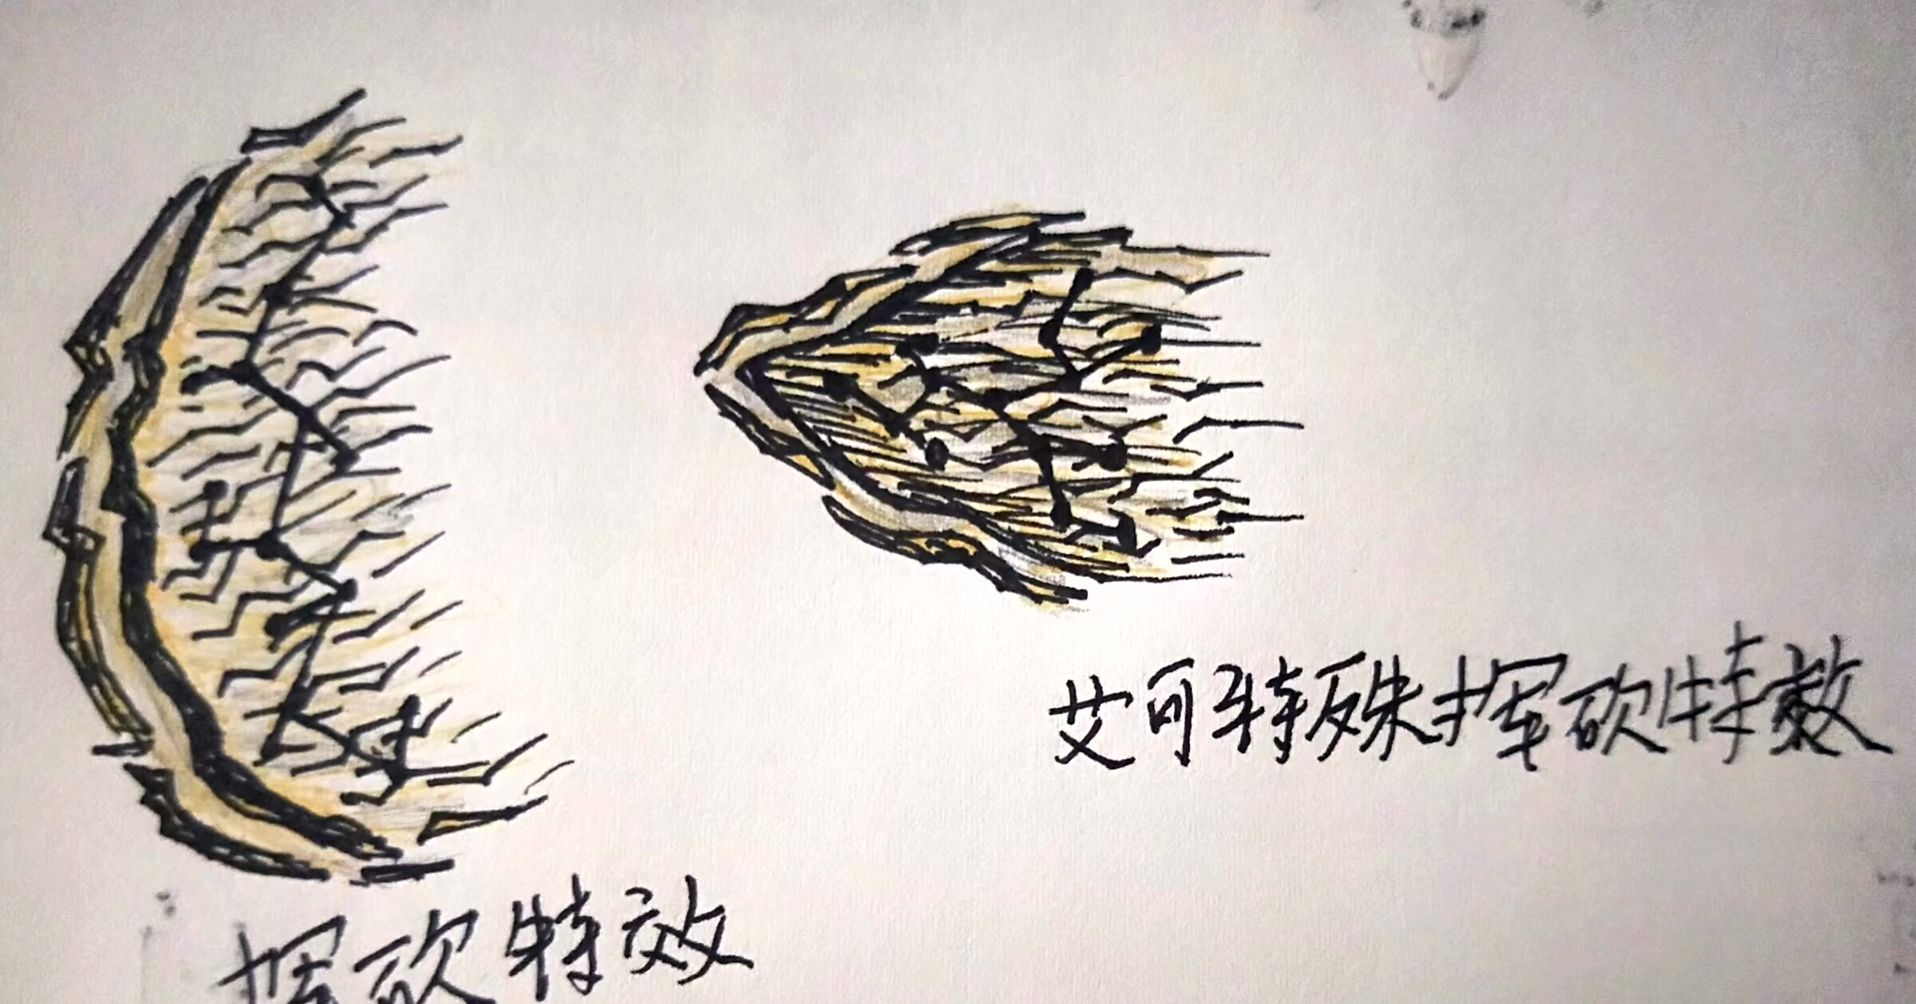 艾可特殊挥砍特效
挥砍特效